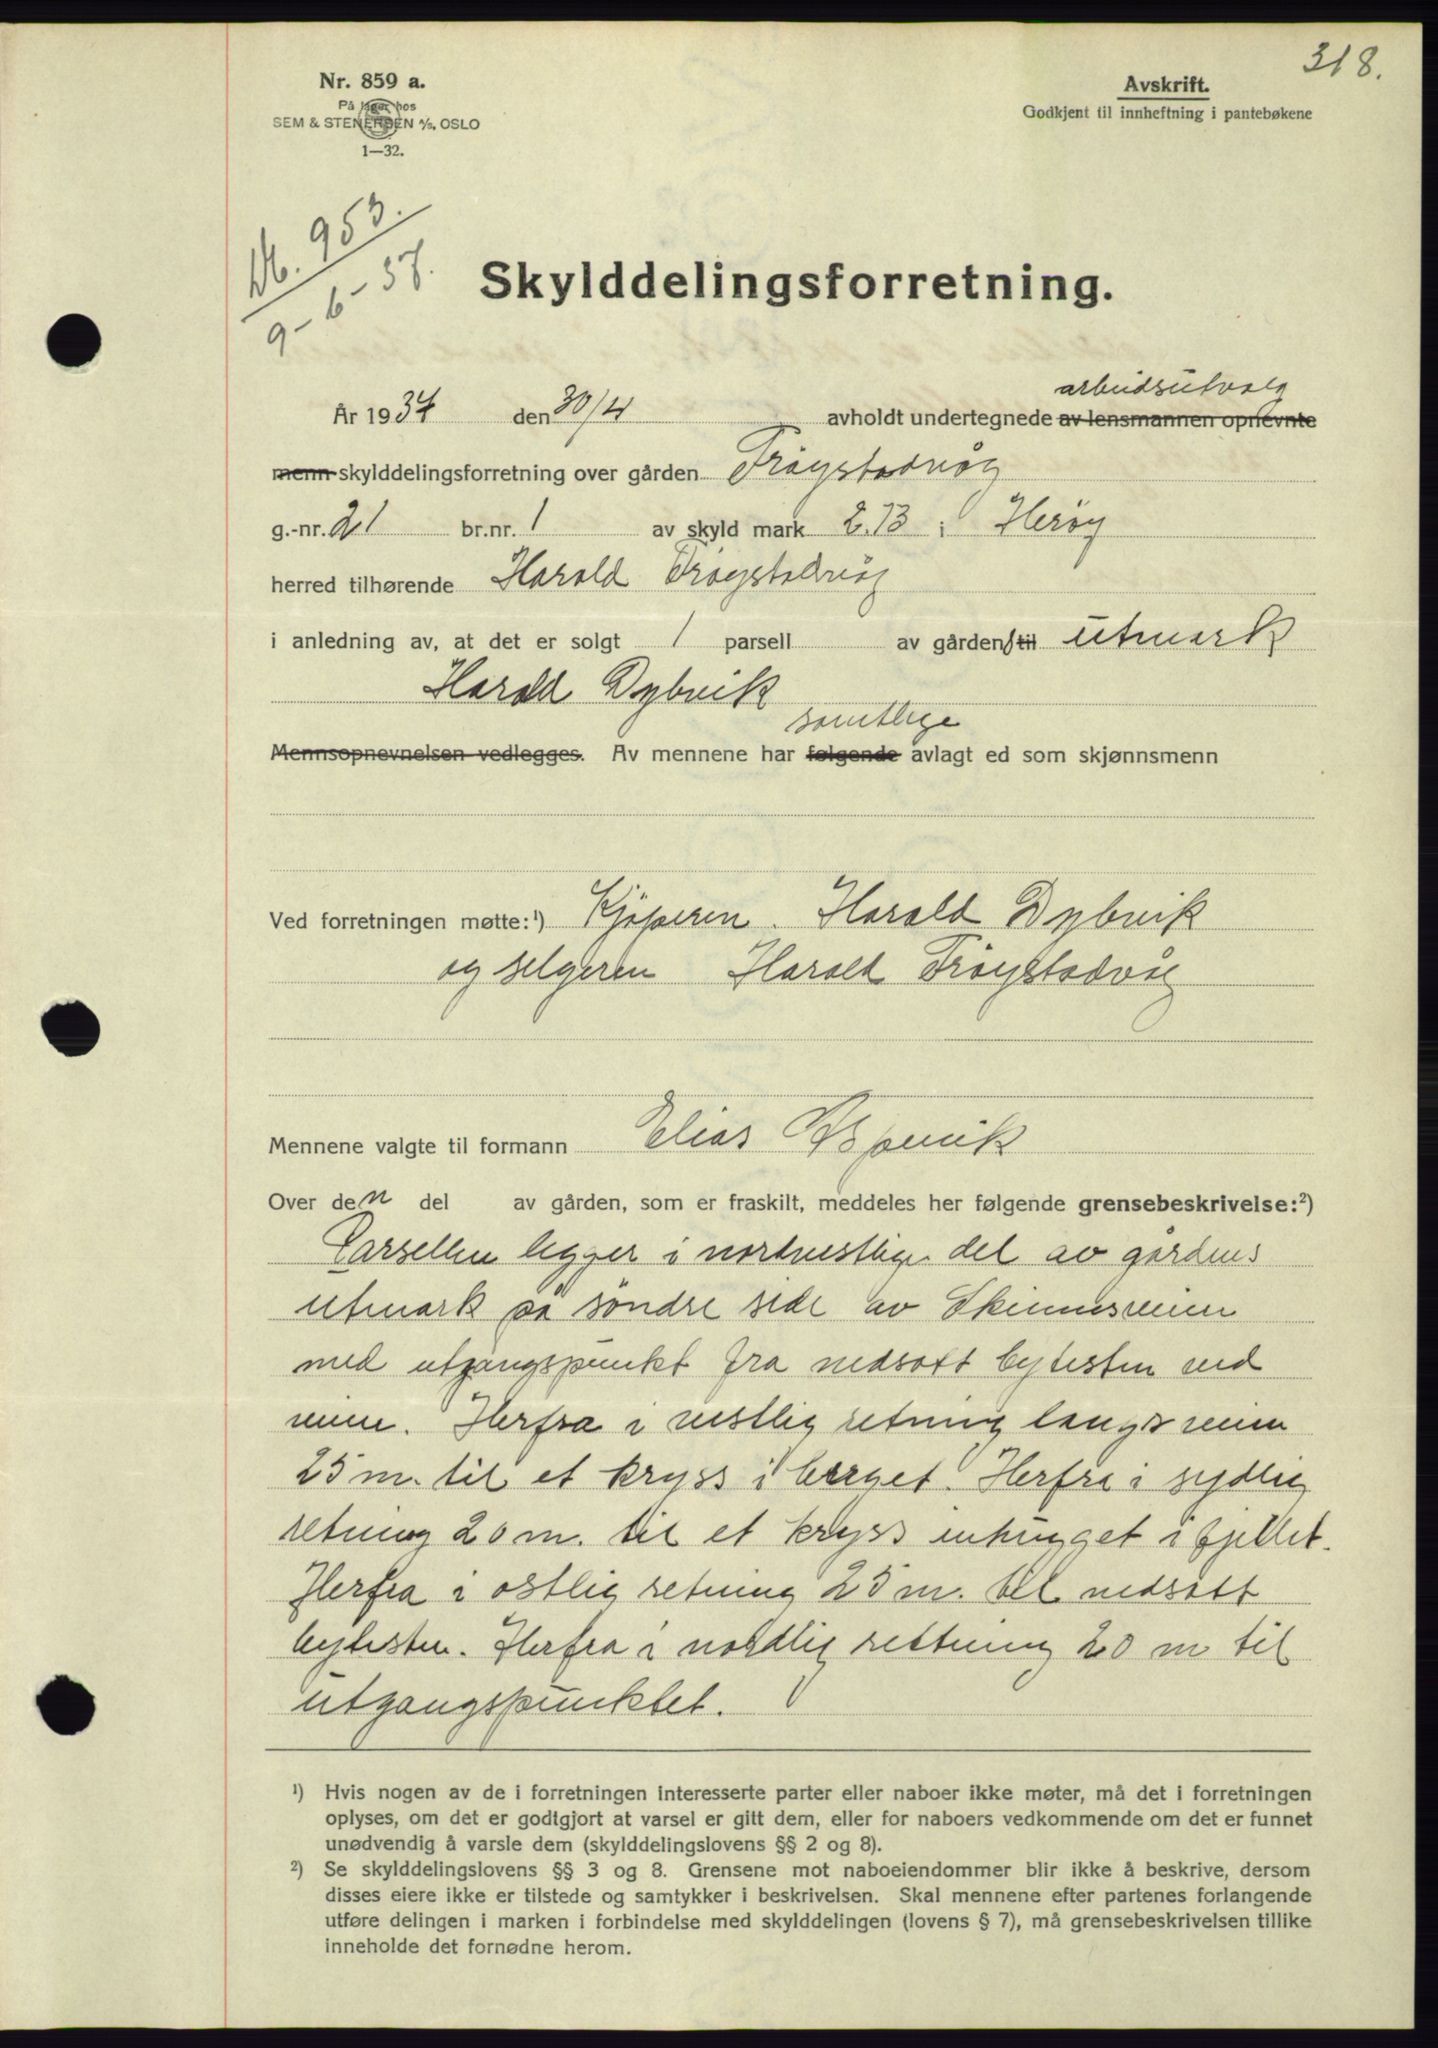 318.
Nr. 859 a.
På lager hos
SEM & STENERSEN A/S, OSLO
1—32.
Avskrift.
Godkjent til innheftning i pantebøkene
953.
9-6-37.
Skylddelingsforretning.
arbeidsutvalg
År 1937 den 30/4 avholdt undertegnede av lensmannen opnevnte
menn skylddelingsforretning over gården Frøystadvåg
g.-nr. 21 br.nr. 1 av skyld mark 2.13 i Herøy
herred tilhørende Harald Frøystadvåg
i anledning av, at det er solgt 1 parsell av gårdens til utmark
Harald Dybvik
samtlige
Mennsopnevnelsen vedlegges. Av mennene har følgende avlagt ed som skjønnsmenn
Ved forretningen møtte:¹) Kjøperen. Harald Dybvik
og selgeren Harald Frøystadvåg
Mennene valgte til formann Elias Aspevik
Over den del av gården, som er fraskilt, meddeles her følgende grensebeskrivelse:²)
Parsellen legger i nordvestlige del av gårdens
utmark på søndre side av
med utgangspunkt fra nedsatt bytesten ved
veien. Herfra i vestlig retning langs veien
25 m. til et kryss i berget. Herfra i sydlig
retning 20 m. til et kryss innhugget i fjellet.
Herfra i østlig retning 25 m. til nedsatt
bytesten. Herfra i nordlig rettning 20 m til
utgangspunktet.
¹) Hvis nogen av de i forretningen interesserte parter eller naboer ikke møter, må det i forretningen
oplyses, om det er godtgjort at varsel er gitt dem, eller for naboers vedkommende om det er funnet
unødvendig å varsle dem (skylddelingslovens §§ 2 og 8).
²) Se skylddelingslovens §§ 3 og 8. Grensene mot naboeiendommer blir ikke å beskrive, dersom
disses eiere ikke er tilstede og samtykker i beskrivelsen. Skal mennene efter partenes forlangende
utføre delingen i marken i forbindelse med skylddelingen (lovens § 7), må grensebeskrivelsen tillike
inneholde det fornødne herom.